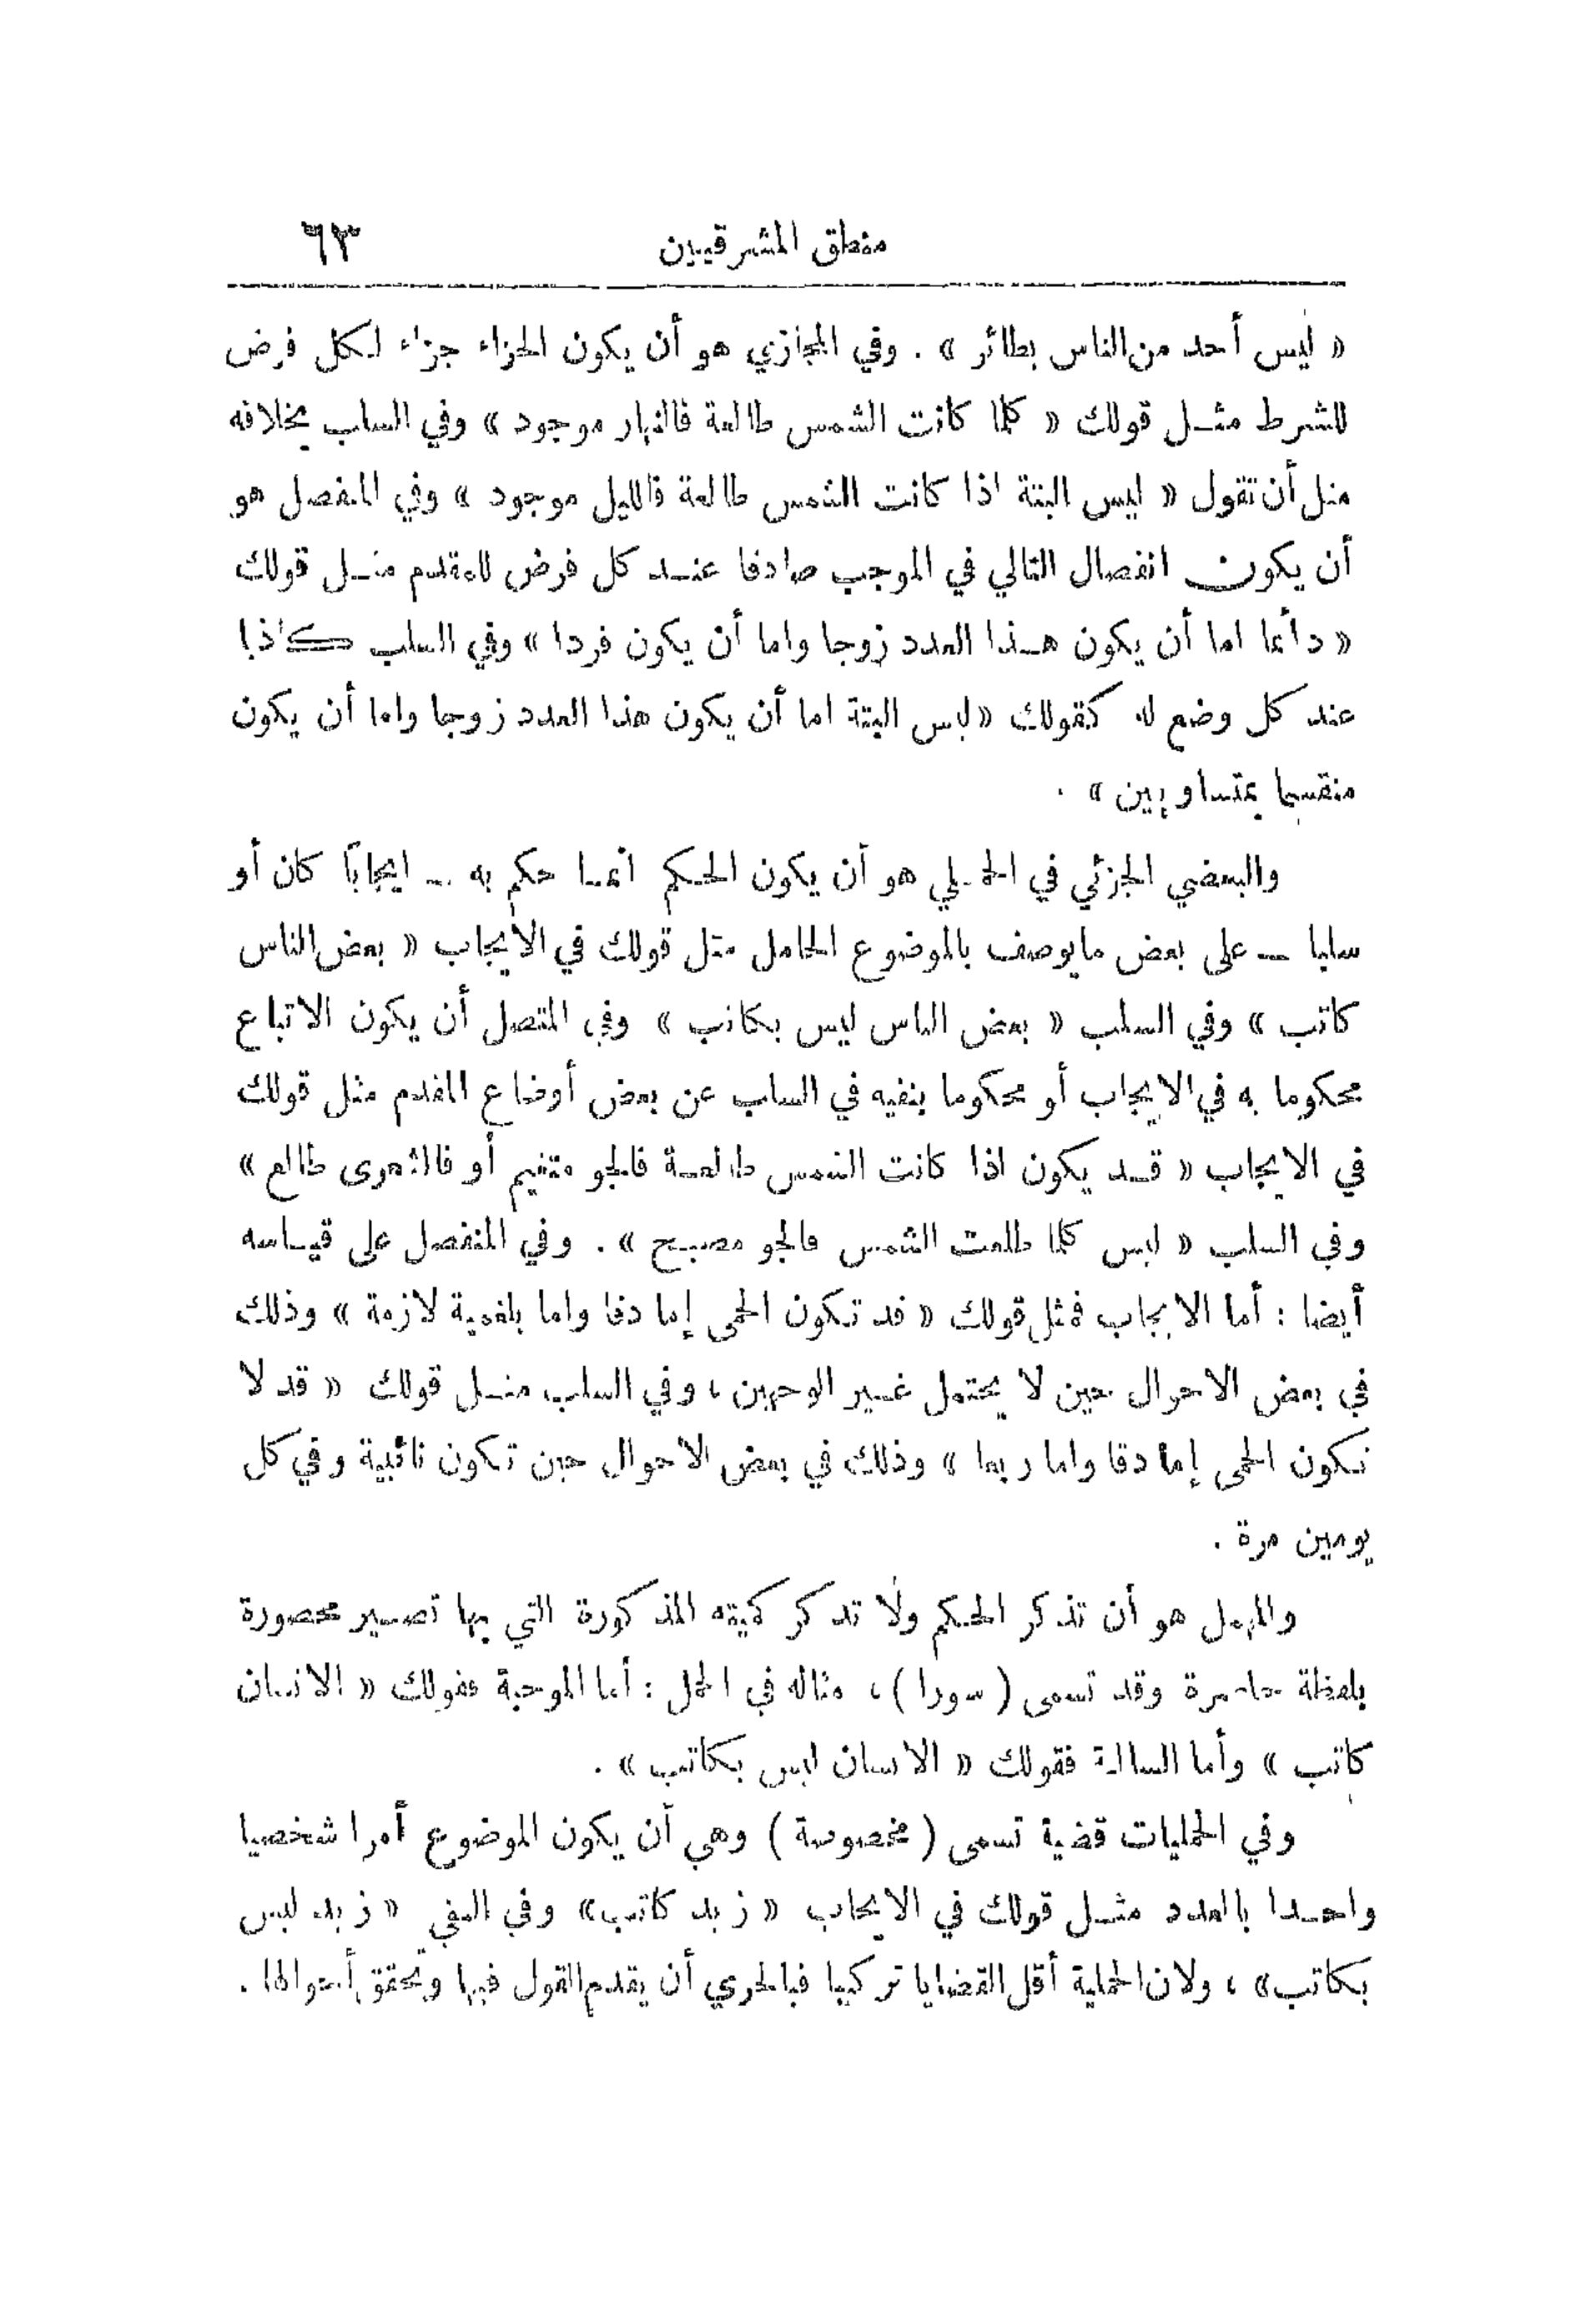 منطق المشرقيين ٦٣
« ليس أحد من الناس بطائر » . وفي المجازي هو أن يكون الجزاء جزاء لكل فرض
للشرط مثل قولك « كلما كانت الشمس طالعة فالنهار موجود » وفي السلب بخلافه
مثل أن تقول « ليس البتة اذا كانت الشمس طالعة فالليل موجود » وفي المنفصل هو
أن يكون انفصال التالي في الموجب صادقا عند كل فرض للمقدم مثل قولك
« دائما اما أن يكون هذا العدد زوجا واما أن يكون فردا » وفي السلب كاذبا
عند كل وضع له كقولك « ليس البتة اما أن يكون هذا العدد زوجا واما أن يكون
منقسما بمتساويين » .
والبعضي الجزئي في الحملي هو أن يكون الحكم انما حكم به — ايجاباً كان أو
سلبا — على بعض مايوصف بالموضوع الحامل مثل قولك في الايجاب « بعض الناس
كاتب » وفي السلب « بعض الناس ليس بكاتب » وفي المتصل أن يكون الاتباع
محكوما به في الايجاب أو محكوما بنفيه في السلب عن بعض أوضاع المقدم مثل قولك
في الايجاب « قد يكون اذا كانت الشمس طالعة فالجو متغيم أو فالشعرى طالع »
وفي السلب « ليس كلما طلعت الشمس فالجو مصبح » . وفي المنفصل على قياسه
أيضا : أما الايجاب فمثل قولك « قد تكون الحمى إما دقا واما بلغمية لازمة » وذلك
في بعض الاحوال حين لا يحتمل غير الوجهين ، وفي السلب مثل قولك « قد لا
تكون الحمى إما دقا واما ربعا » وذلك في بعض الاحوال حين تكون نائبية وفي كل
يومين مرة .
والمهمل هو أن تذكر الحكم ولا تذكر كميته المذكورة التي بها تصير محصورة
بلفظة حاصرة وقد تسمى ( سورا ) ، مثاله في الحمل : أما الموجبة فقولك « الانسان
كاتب » وأما السالبة فقولك « الانسان ليس بكاتب » .
وفي الحمليات قضية تسمى ( مخصوصة ) وهي أن يكون الموضوع أمرا شخصيا
واحدا بالعدد مثل قولك في الايجاب « زيد كاتب» وفي النفي « زيد ليس
بكاتب» ، ولان الحملية أقل القضايا تركيبا فبالحري أن يقدم القول فيها وتحقق أحوالها .